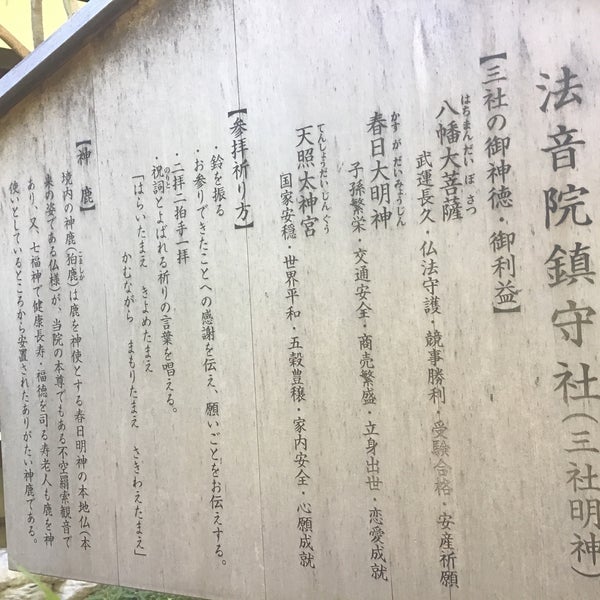 法音院鎮守社（三社明神）
【三社の御神徳・御利益】
はちまんだいぼさつ
八幡大菩薩
武運長久・仏法守護・競事勝利・受験合格・安産祈願
かすがだいみょうじん
春日大明神
子孫繁栄・交通安全・商売繁盛・立身出世・恋愛成就
てんしょうだいじんぐう
天照太神宮
国家安穏・世界平和・五穀豊穣・家内安全・心願成就
【参拝祈り方】
・鈴を振る
・お参りできたことへの感謝を伝え、願いごとをお伝えする。
・二拝二拍手一拝
のりと
・祝詞とよばれる祈りの言葉を唱える。
「はらいたまえ　きよめたまえ
かむながら　まもりたまえ　さきわえたまえ」
【神鹿】
こましか
境内の神鹿（狛鹿）は鹿を神使とする春日明神の本地仏（本
来の姿である仏様）が、当院の本尊でもある不空羂索観音で
あり、又、七福神で健康長寿・福徳を司る寿老人も鹿を神
使いとしているところから安置されたありがたい神鹿である。